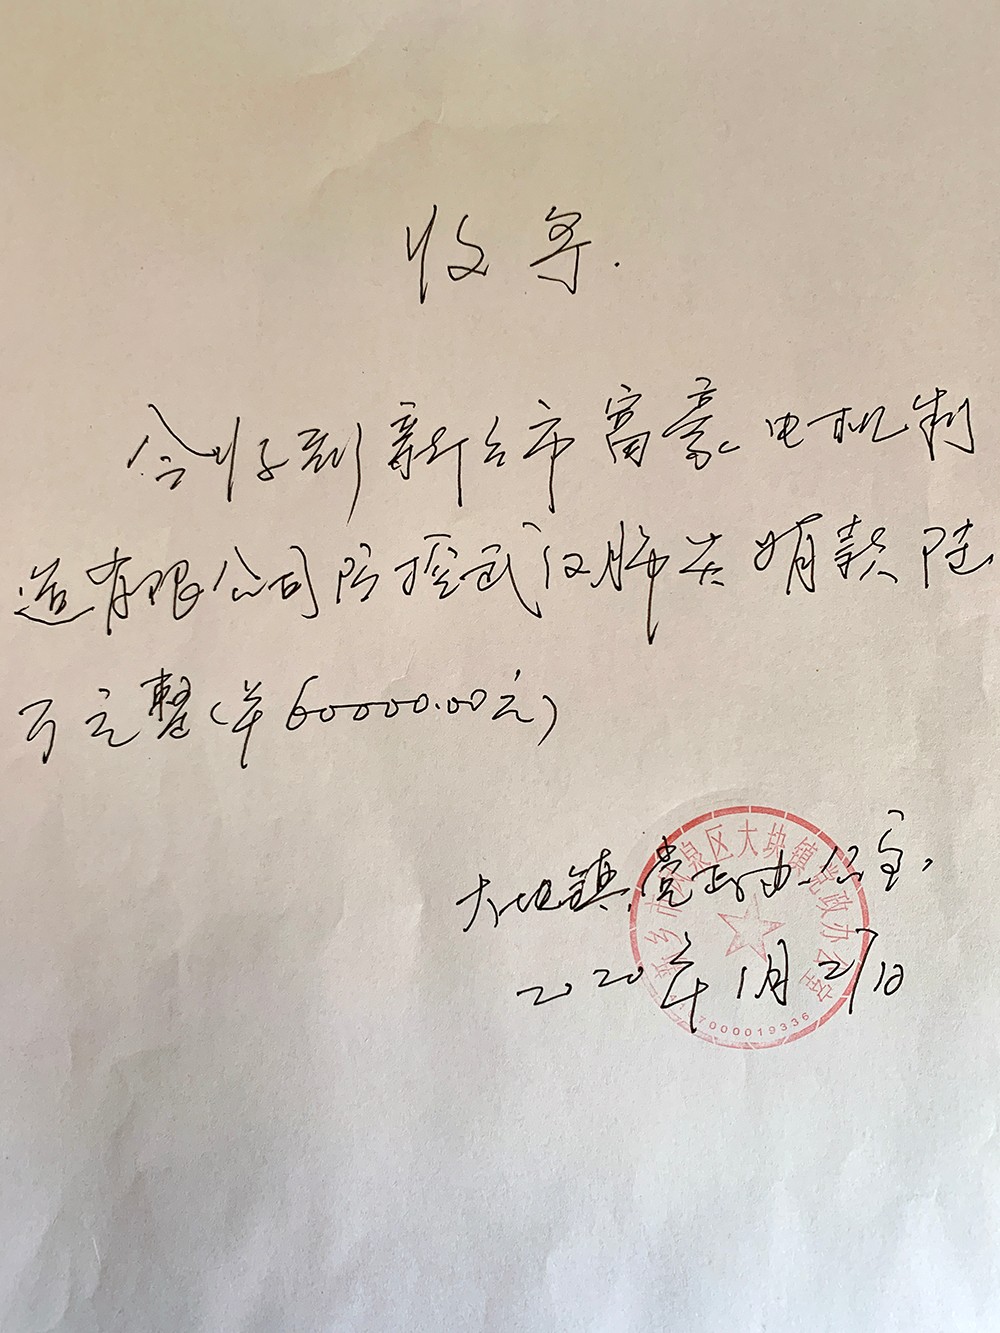 收条.
今收到新乡市富豪电机制
造有限公司防控武汉肺炎捐款陆
万元整(羊60000.00元)
大块镇党政办公室
2020年1月27日
新乡市凤泉区大块镇党政办公室
7000019336